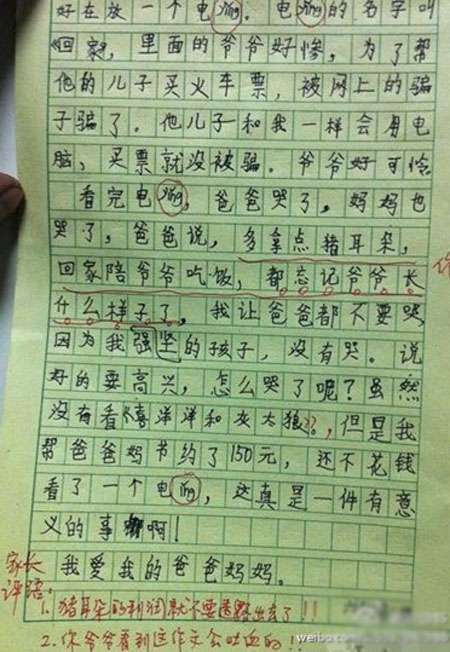 好在放一个电ying。电ying的名字叫
回家，里面的爷爷好惨，为了帮
他的儿子买火车票，被网上的骗
子骗了。他儿子和我一样会用电
脑，买票就没被骗。爷爷好可怜
看完电ying，爸爸哭了，妈妈也
哭了，爸爸说，多拿点猪耳朵，
回家陪爷爷吃饭，都忘记爷爷长
什么样子了。我让爸爸都不要哭
因为我强坚的孩子，没有哭。说
好的要高兴，怎么哭了呢？虽然
没有看喜洋洋和灰太狼，但是我
帮爸爸妈节约了150元，还不花钱
看了一个电ying，这真是一件有意
义的事啊！
我爱我的爸爸妈妈。
家长
评语：
1.猪耳朵的利润就不要透露出去了!!
2.你爷爷看到这作文会吐血的!!